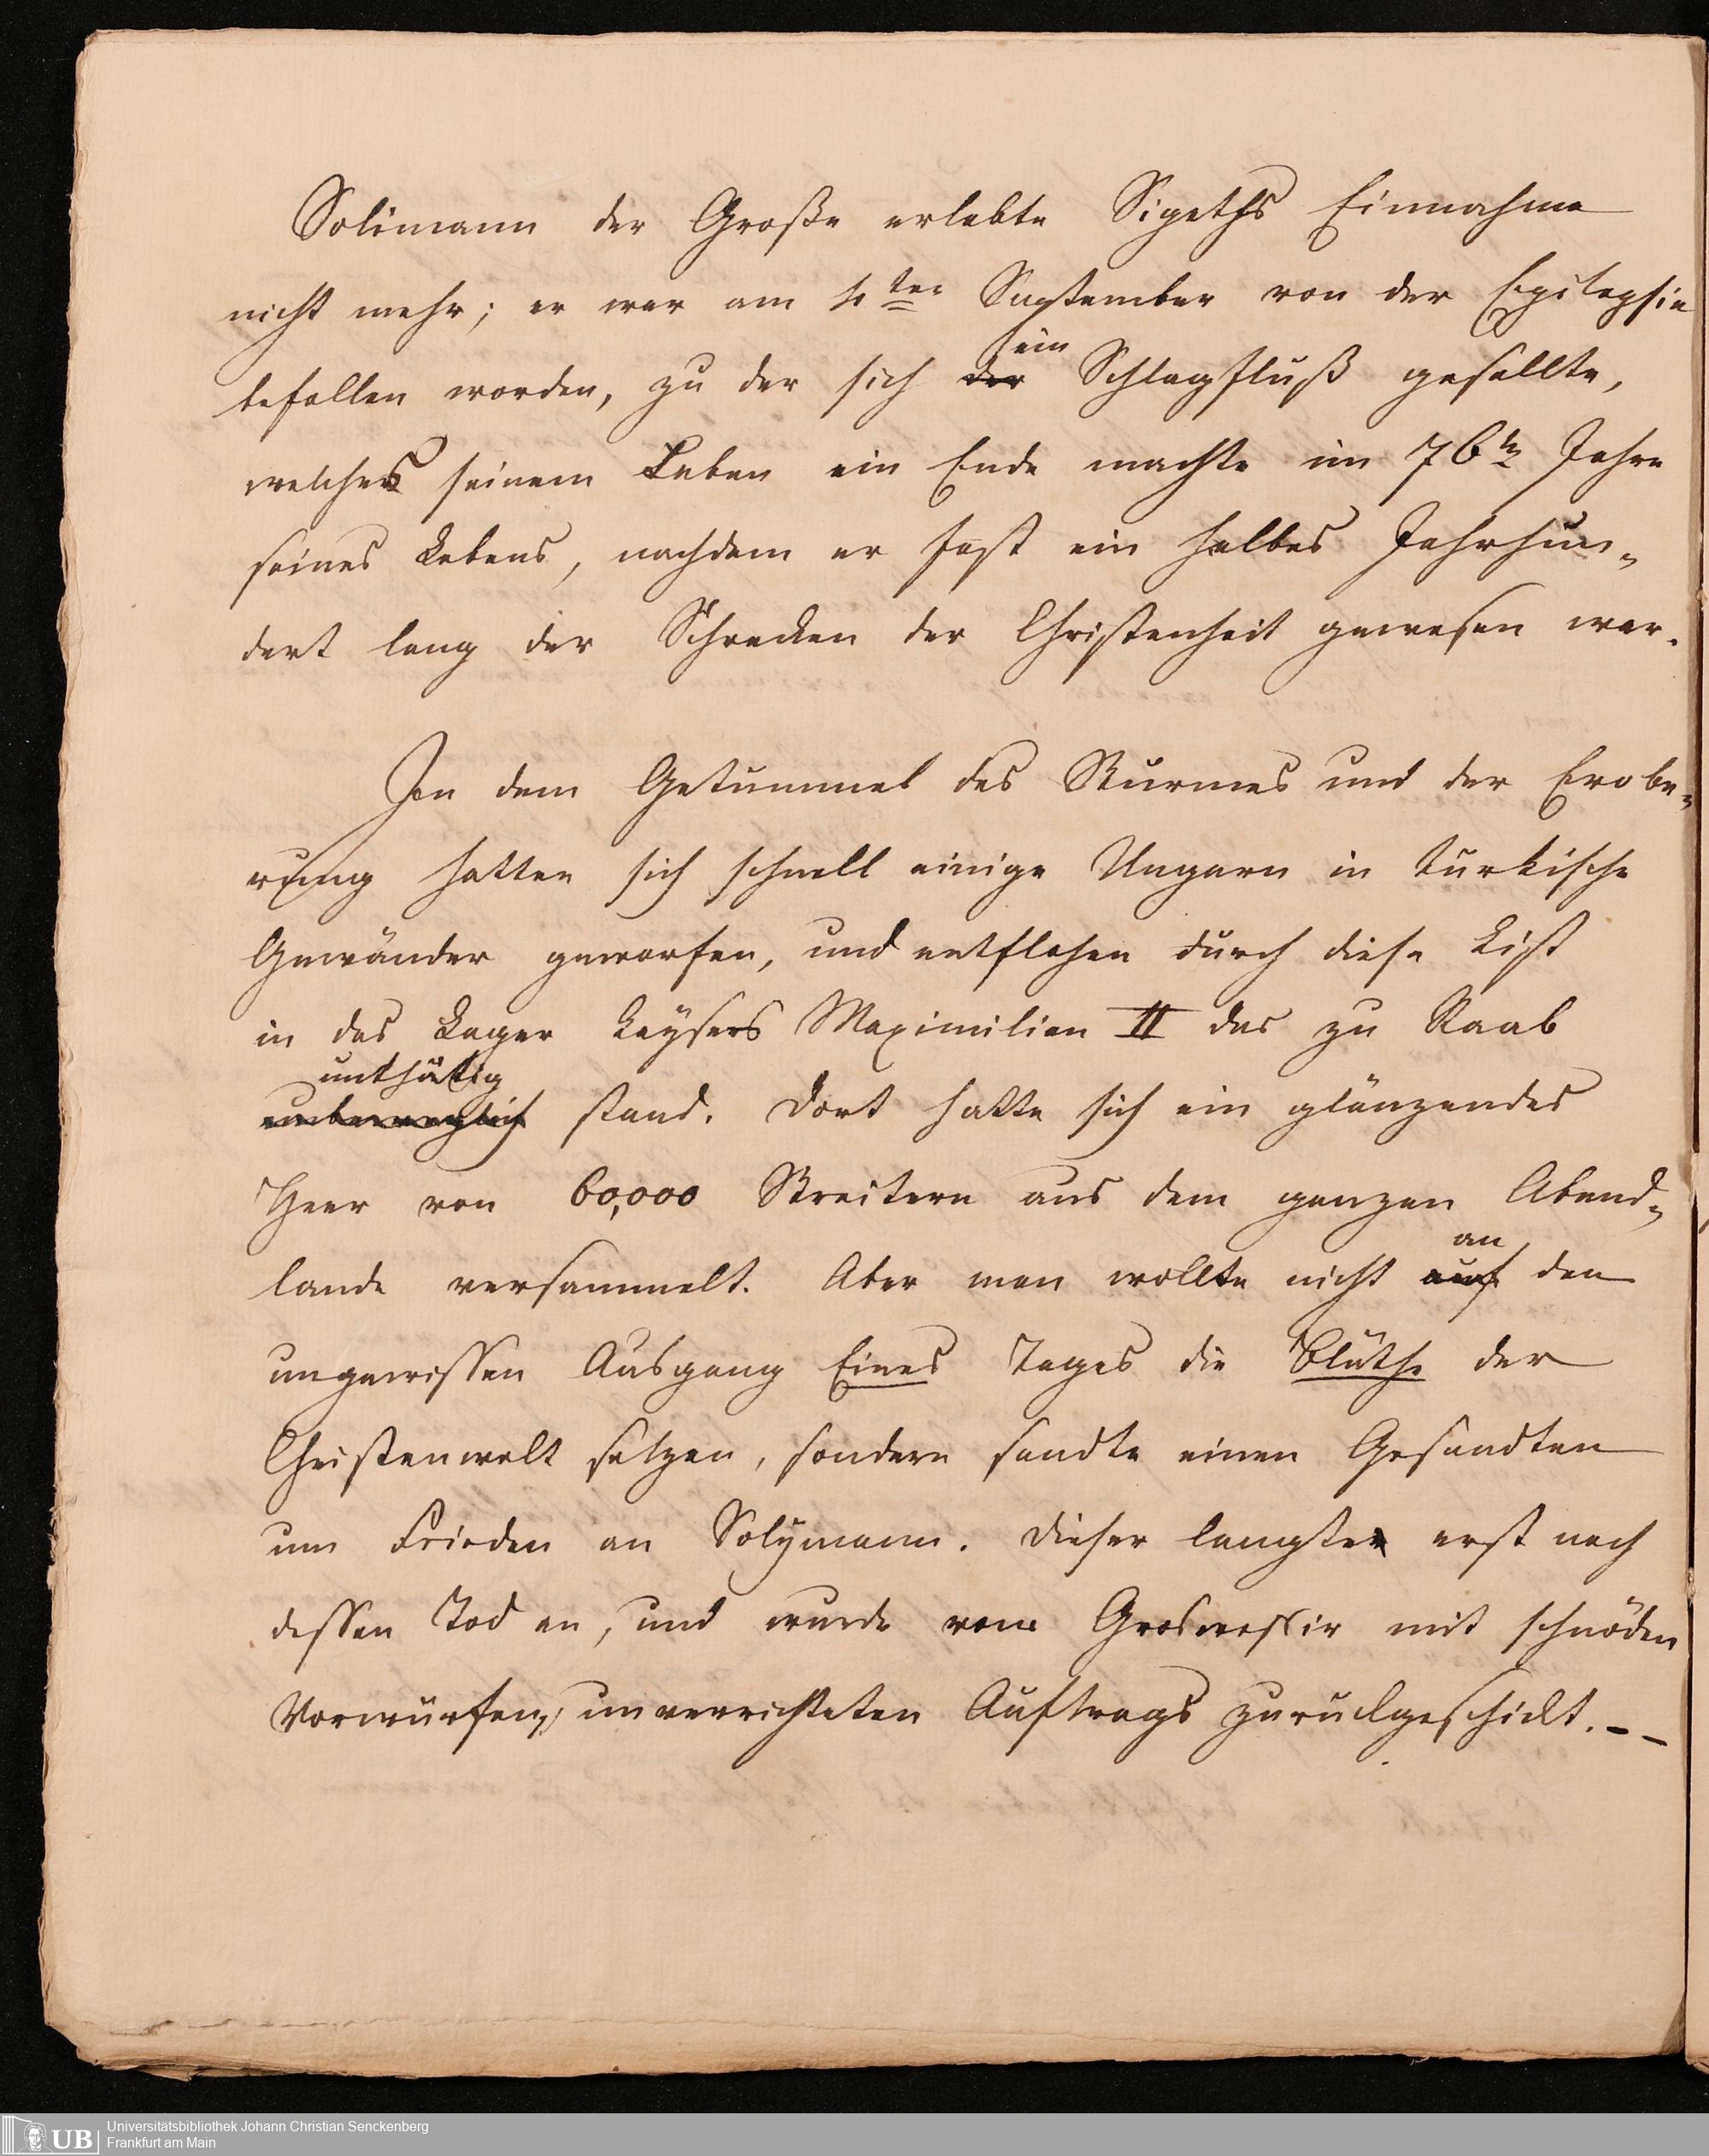 Solimann der Große erlebte Sigeths Einnahme
nicht mehr; er war am 4ten September von der Epilepsie
befallen worden, zu der sich der ein Schlagfluß gesellte,
welches seinem Leben ein Ende machte im 76ten Jahre
seines Lebens, nachdem er fast ein halbes Jahrhun-
dert lang der Schrecken der Christenheit gewesen war.
In dem Getümmel des Sturmes und der Erobe-
rung hatten sich schnell einige Ungarn in türkische
Gewänder geworfen, und entflohen durch diese List
in das Lager Kaysers Maximilian II das zu Raab
unthätig
unbeweglich stand. Dort hatte sich ein glänzendes
Heer von 60,000 Streitern aus dem ganzen Abend-
lande versammelt. Aber man wollte nicht auf an den
ungewissen Ausgang Eines Tages die Blüthe der
Christenwelt setzen, sondern sandte einen Gesandten
um Frieden an Solymann. Dieser langte erst nach
dessen Tod an, und wurde vom Groswessir mit schnöden
Vorwürfen, unverrichteten Auftrags zurückgeschickt. - -
Universitätsbibliothek Johann Christian Senckenberg
Frankfurt am Main
UB